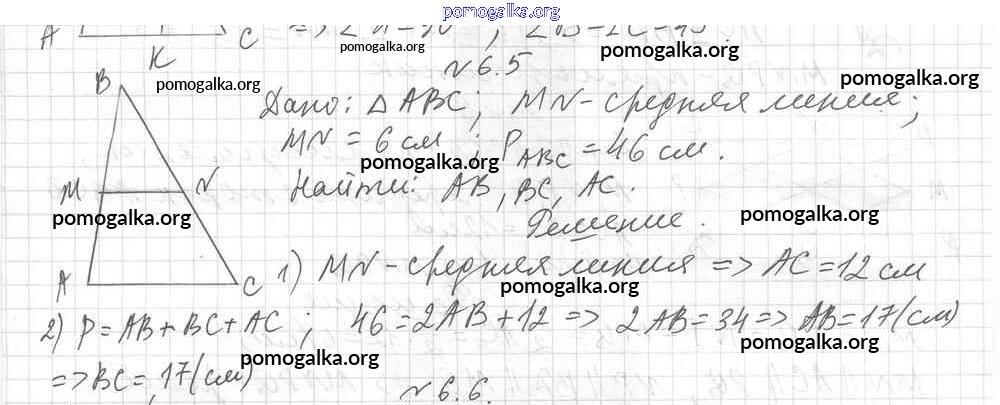 pomogalka.org
A K C => 2
pomogalka.org pomogalka.org
№ 6.5
B pomogalka.org pomogalka.org
Дано: △ ABC; MN - средняя линия;
MN = 6 см ; P ABC = 46 см.
pomogalka.org
M N Найти: AB, BC, AC.
pomogalka.org pomogalka.org
Решение.
A C 1) MN - средняя линия => AC = 12 см
pomogalka.org
2) P = AB + BC + AC ; 46 = 2AB + 12 => 2AB = 34 => AB = 17 (см)
pomogalka.org pomogalka.org
=> BC = 17 (см)
№ 6.6.